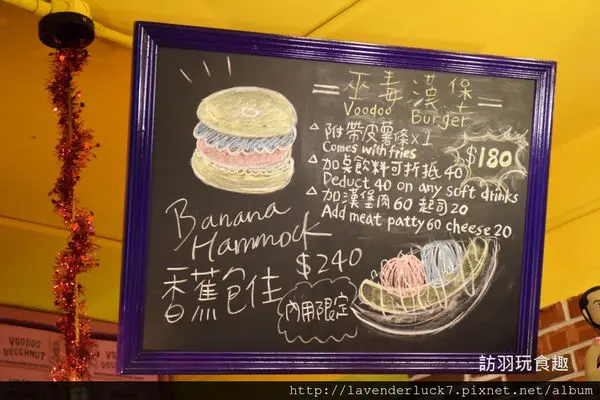 巫毒漢堡
Voodoo Burger
△附帶皮薯條x1
Comes with fries
$180
△加桌飲料可折抵40
Deduct 40 on any soft drinks
△加漢堡肉60 起司20
Add meat patty 60 cheese 20
Banana
Hammock
$240
香蕉包佳
內用限定
VOODOO
DOUGHNUT
訪羽玩食趣
http://lavenderluck7.pixnet.net/album